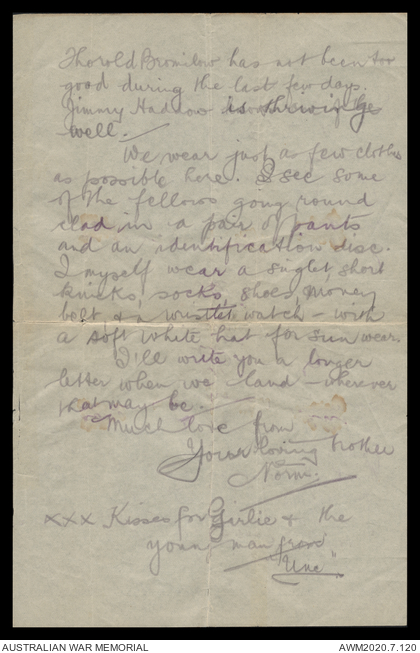 Thorold Bromilow has not been too
good during the last few days.
Jimmy Haddow is thriving
well.
We wear just a few clothes
as possible here. I see some
of the fellows going round
clad in a pair of pants
and an identification disc.
I myself wear a singlet, short
knicks, socks, shoes, money
belt, & a wristlet watch - with
a soft white hat for sun wear.
I'll write you a longer
letter when we land - wherever
that may be.
Much love from
Your loving brother
Norm.
xxx Kisses for Girlie & the
young man from
"Unc".
AUSTRALIAN WAR MEMORIAL
AWM2020.7.120